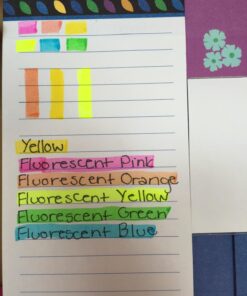 Yellow
Fluorescent Pink
Fluorescent Orange
Fluorescent Yellow
Fluorescent Green
Fluorescent Blue